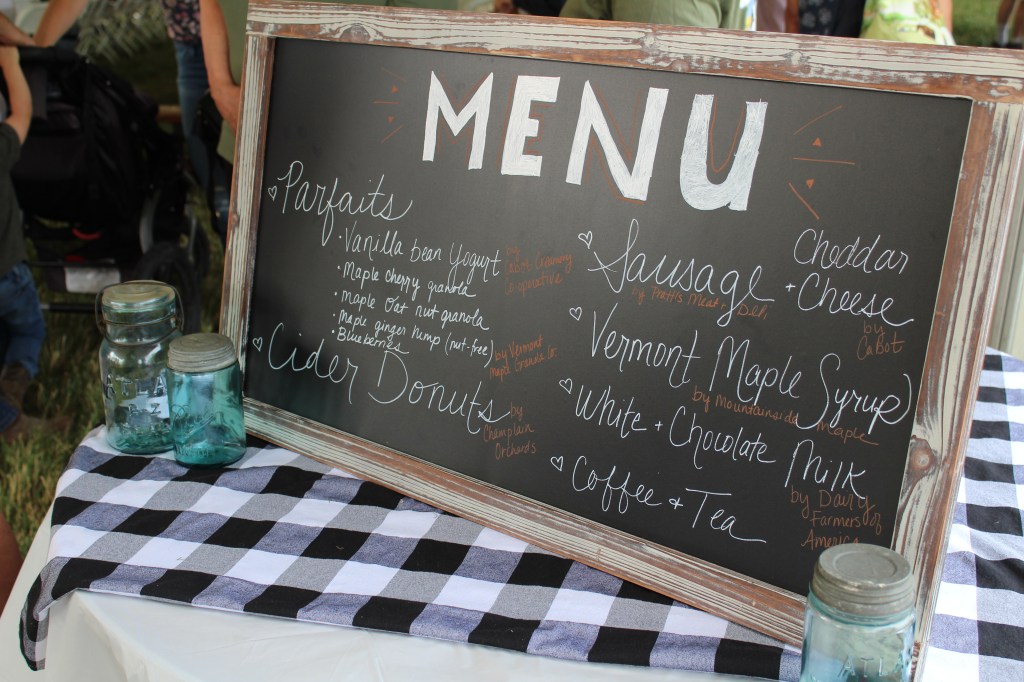 MENU
Parfaits
• Vanilla bean Yogurt
by Cabot Creamery
Co-operative
• Maple cherry granola
• maple oat nut granola
• maple ginger hemp (nut-free)
• Blueberries
by Vermont
Maple Granola Co.
Cider Donuts
by
Champlain
Orchards
Sausage
by
Meat + Deli
+ Cheddar
Cheese
by
Cabot
Vermont Maple Syrup
by Mountainside Maple
White + Chocolate Milk
by Dairy
Farmers of
America
Coffee + Tea
ATLA
E-Z
ATLA